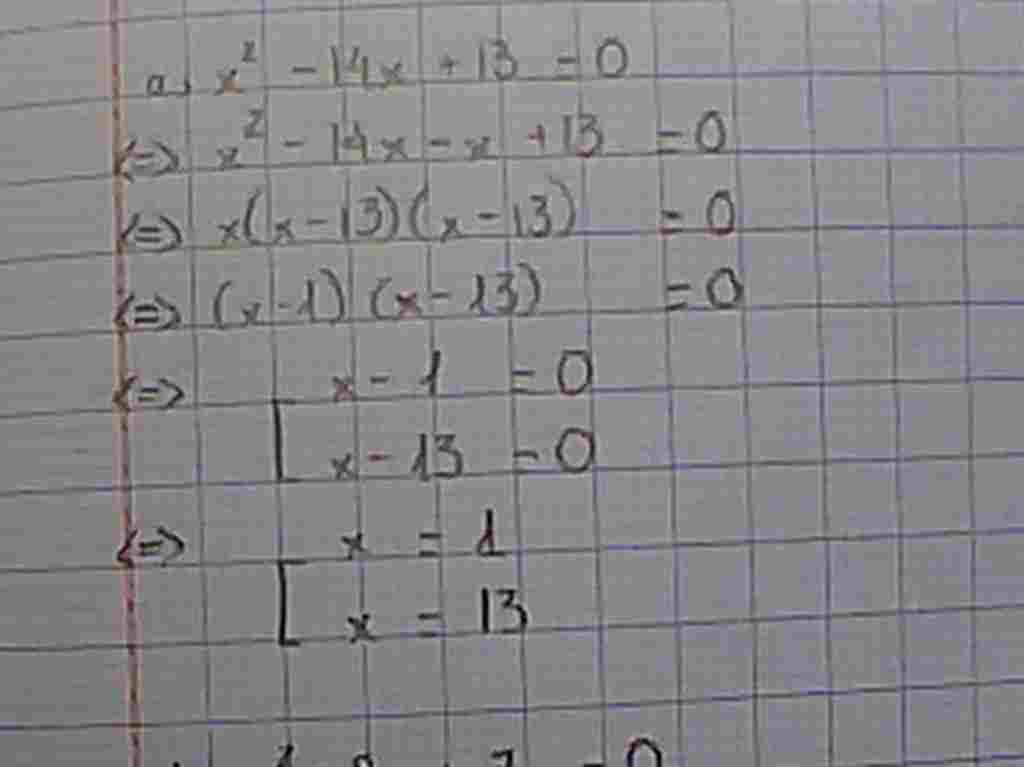 a, x² - 14x + 13 = 0
<=> x² - 14x - x + 13 = 0
<=> x(x - 13)(x - 13) = 0
<=> (x - 1)(x - 13) = 0
<=> [ x - 1 = 0
x - 13 = 0
<=> [ x = 1
x = 13